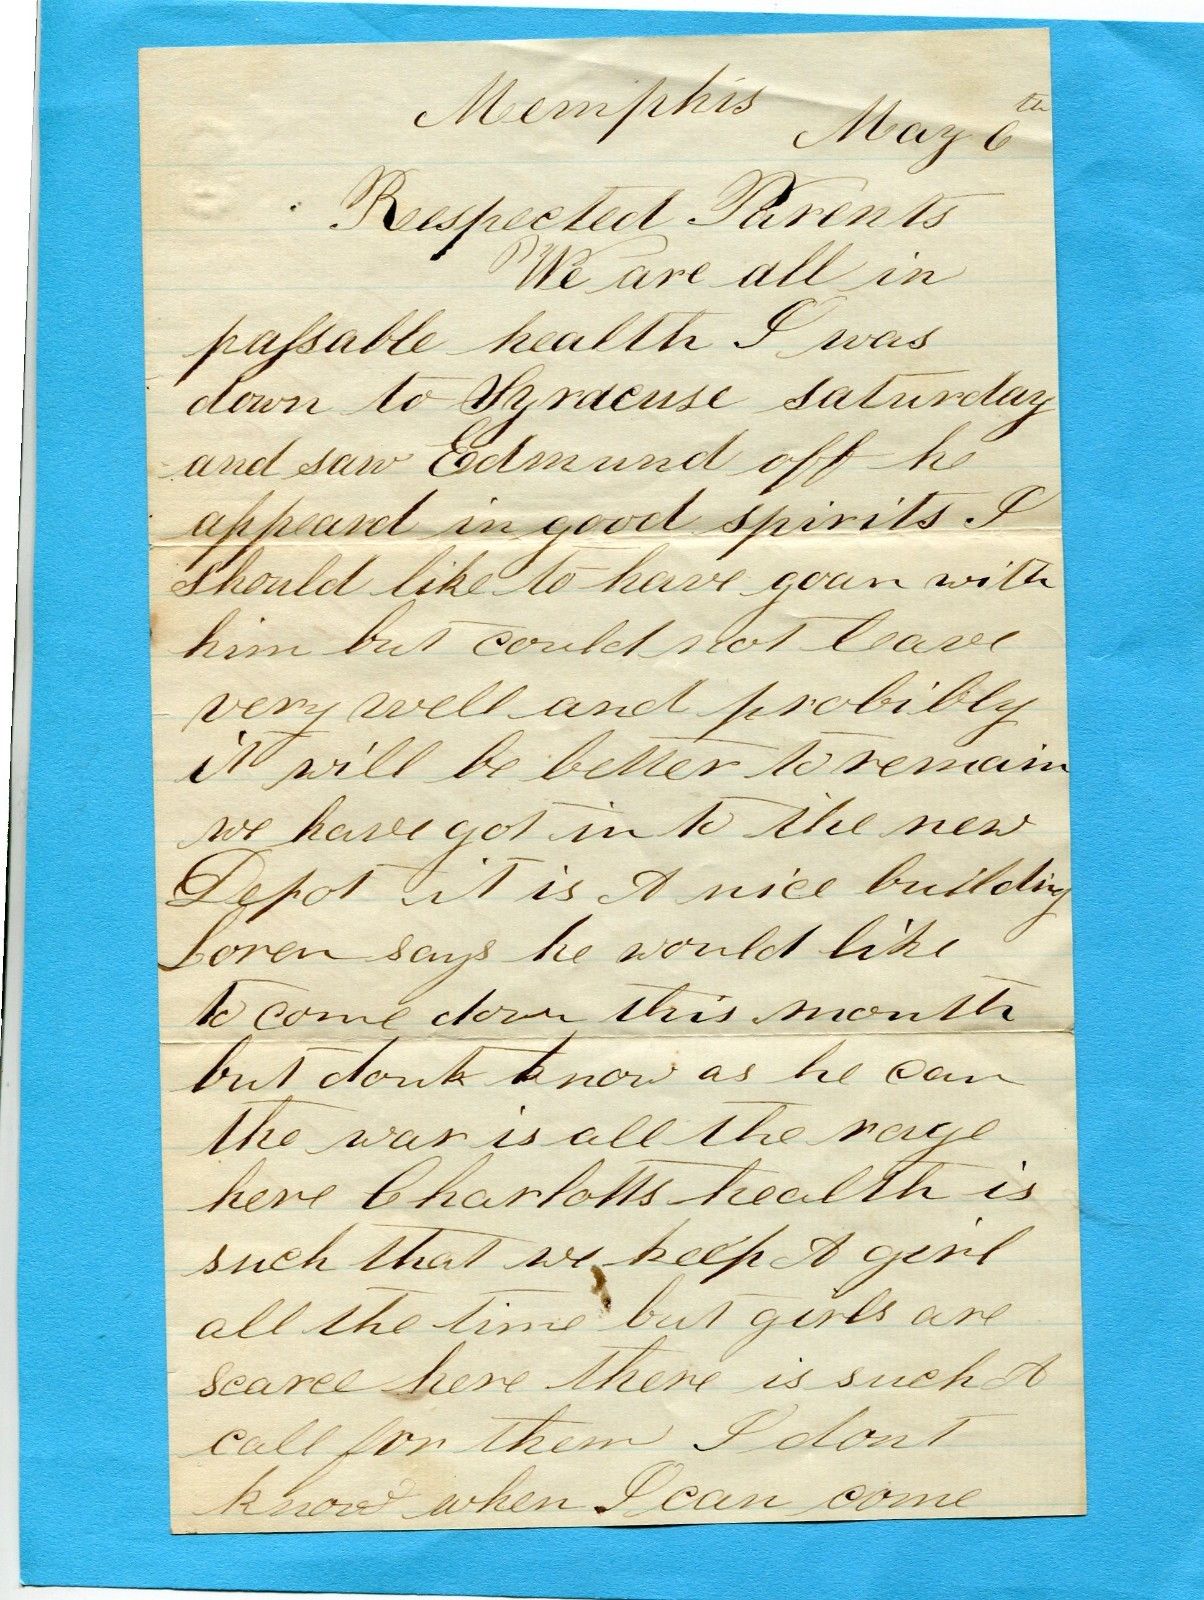 Memphis
May 6th
Respected Parents
We are all in
paſsable health I was
down to Syracuse saturday
and saw Edmund off he
appeard in good spirits I
should like to have goan with
him but could not leave
very well and probibly
it will be better to remain
we have got in to the new
Depot it is A nice building
Loren says he would like
to come down this month
but dont know as he can
the war is all the rage
here Charlotts health is
such that we keep A girl
all the time but girls are
scarce here there is such A
call for them I dont
know when I can come